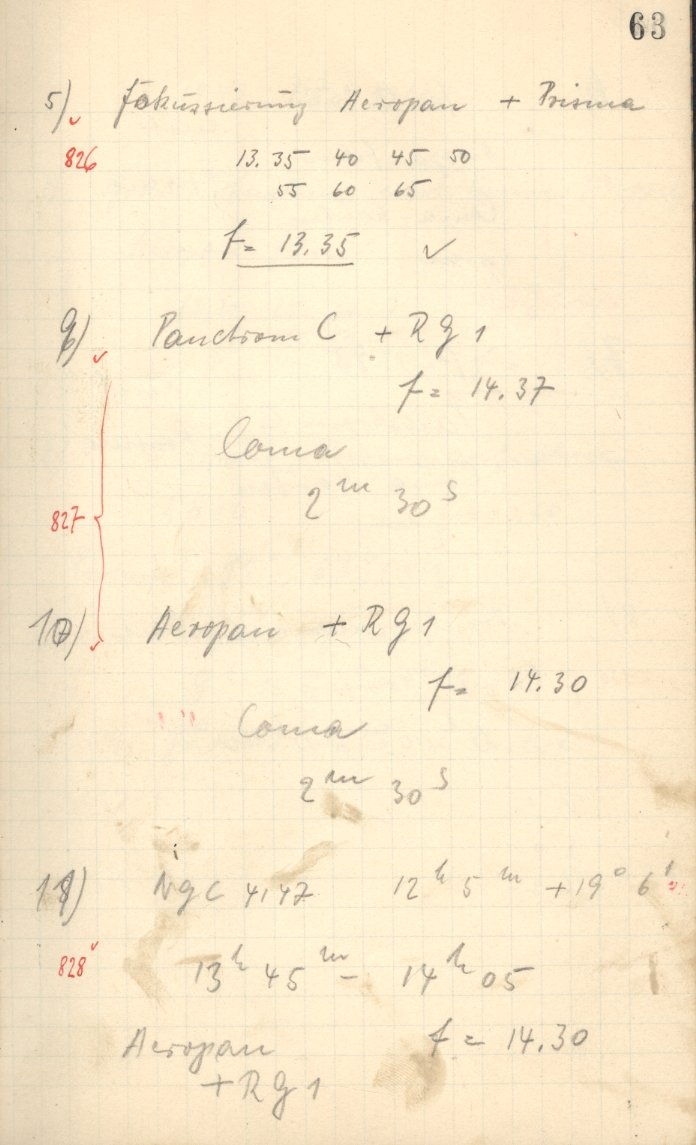 63
5) Fokussierung Aeropan + Prisma
826 13.35 40 45 50
55 60 65
f = 13.35 ✓
Panchrom C + Rg 1
f = 14.37
Coma
2 m 30 s
827
10) Aeropan + Rg 1
f = 14.30
" " Coma
2 m 30 s
NGC 4147 12 h 5 m + 19° 6'
828 13 h 45 m - 14 h 05
Aeropan f = 14.30
+ Rg 1